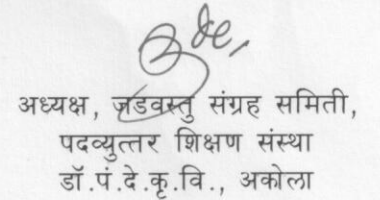 अध्यक्ष, जडवस्तु संग्रह समिती,
पदव्युत्तर शिक्षण संस्था
डॉ.पं.दे.कृ.वि., अकोला